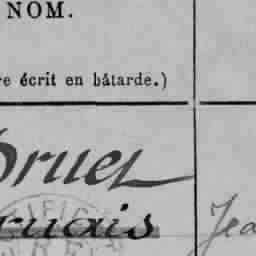 NOM.
re écrit en bâtarde.)
Druet
ruais
Jea